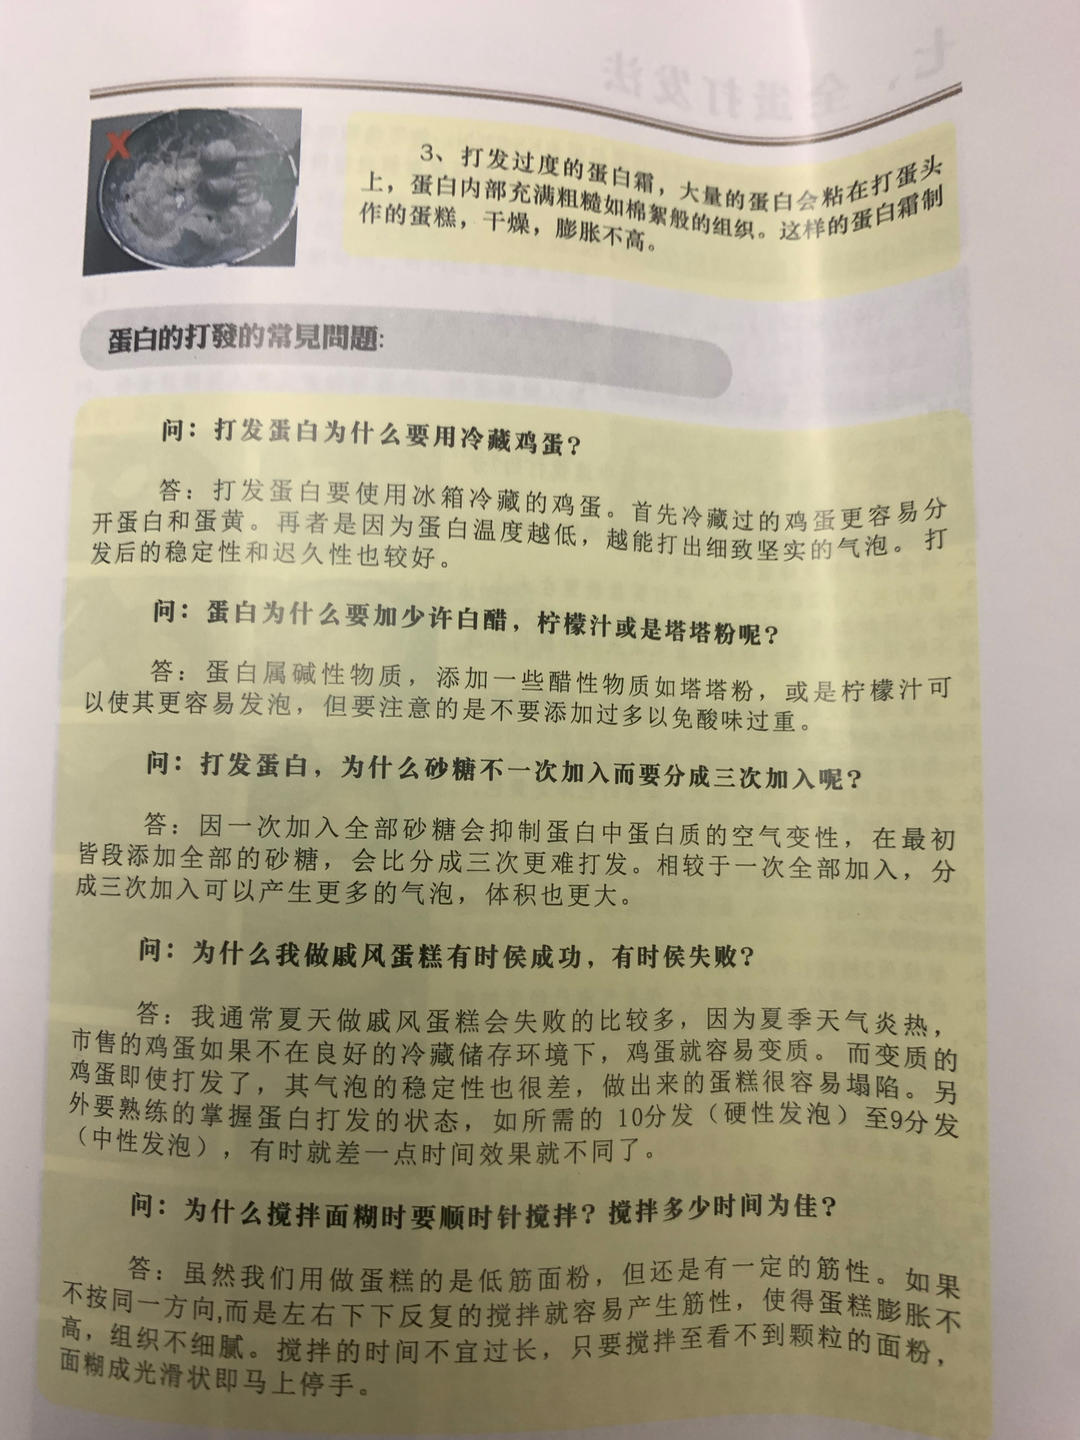 七、全蛋打发法
3、打发过度的蛋白霜，大量的蛋白会粘在打蛋头
上，蛋白内部充满粗糙如棉絮般的组织。这样的蛋白霜制
作的蛋糕，干燥，膨胀不高。
蛋白的打發的常見問題:
问：打发蛋白为什么要用冷藏鸡蛋？
答：打发蛋白要使用冰箱冷藏的鸡蛋。首先冷藏过的鸡蛋更容易分
开蛋白和蛋黄。再者是因为蛋白温度越低，越能打出细致坚实的气泡。打
发后的稳定性和迟久性也较好。
问：蛋白为什么要加少许白醋，柠檬汁或是塔塔粉呢？
答：蛋白属碱性物质，添加一些醋性物质如塔塔粉，或是柠檬汁可
以使其更容易发泡，但要注意的是不要添加过多以免酸味过重。
问：打发蛋白，为什么砂糖不一次加入而要分成三次加入呢？
答：因一次加入全部砂糖会抑制蛋白中蛋白质的空气变性，在最初
皆段添加全部的砂糖，会比分成三次更难打发。相较于一次全部加入，分
成三次加入可以产生更多的气泡，体积也更大。
问：为什么我做戚风蛋糕有时侯成功，有时侯失败？
答：我通常夏天做戚风蛋糕会失败的比较多，因为夏季天气炎热，
市售的鸡蛋如果不在良好的冷藏储存环境下，鸡蛋就容易变质。而变质的
鸡蛋即使打发了，其气泡的稳定性也很差，做出来的蛋糕很容易塌陷。另
外要熟练的掌握蛋白打发的状态，如所需的 10分发（硬性发泡）至9分发
（中性发泡），有时就差一点时间效果就不同了。
问：为什么搅拌面糊时要顺时针搅拌？搅拌多少时间为佳？
答：虽然我们用做蛋糕的是低筋面粉，但还是有一定的筋性。如果
不按同一方向,而是左右下下反复的搅拌就容易产生筋性，使得蛋糕膨胀不
高，组织不细腻。搅拌的时间不宜过长，只要搅拌至看不到颗粒的面粉，
面糊成光滑状即马上停手。